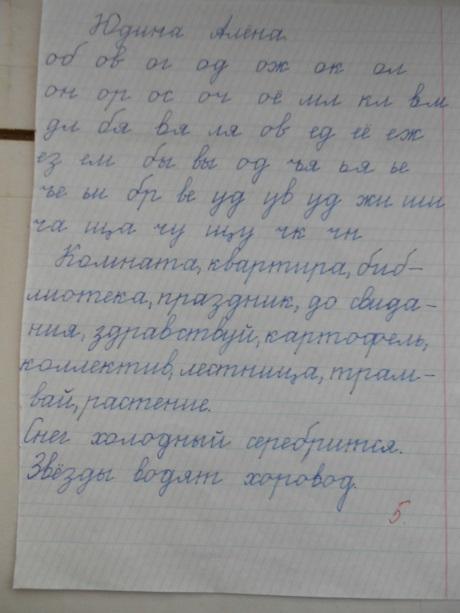 Юдина Алёна
об ов ог од ож ок ол
он ор ос оч оё мл кл вм
дл бя вя ля ов ед её еж
ез ем бы вы од ъя ья ье
ъе ьи бр ве уд ув уд жи ши
ча ща чу щу чк чн
Комната, квартира, биб-
лиотека, праздник, до свида-
ния, здравствуй, картофель,
коллектив, лестница, трам-
вай, растение.
Снег холодный серебрится.
Звёзды водят хоровод.
5